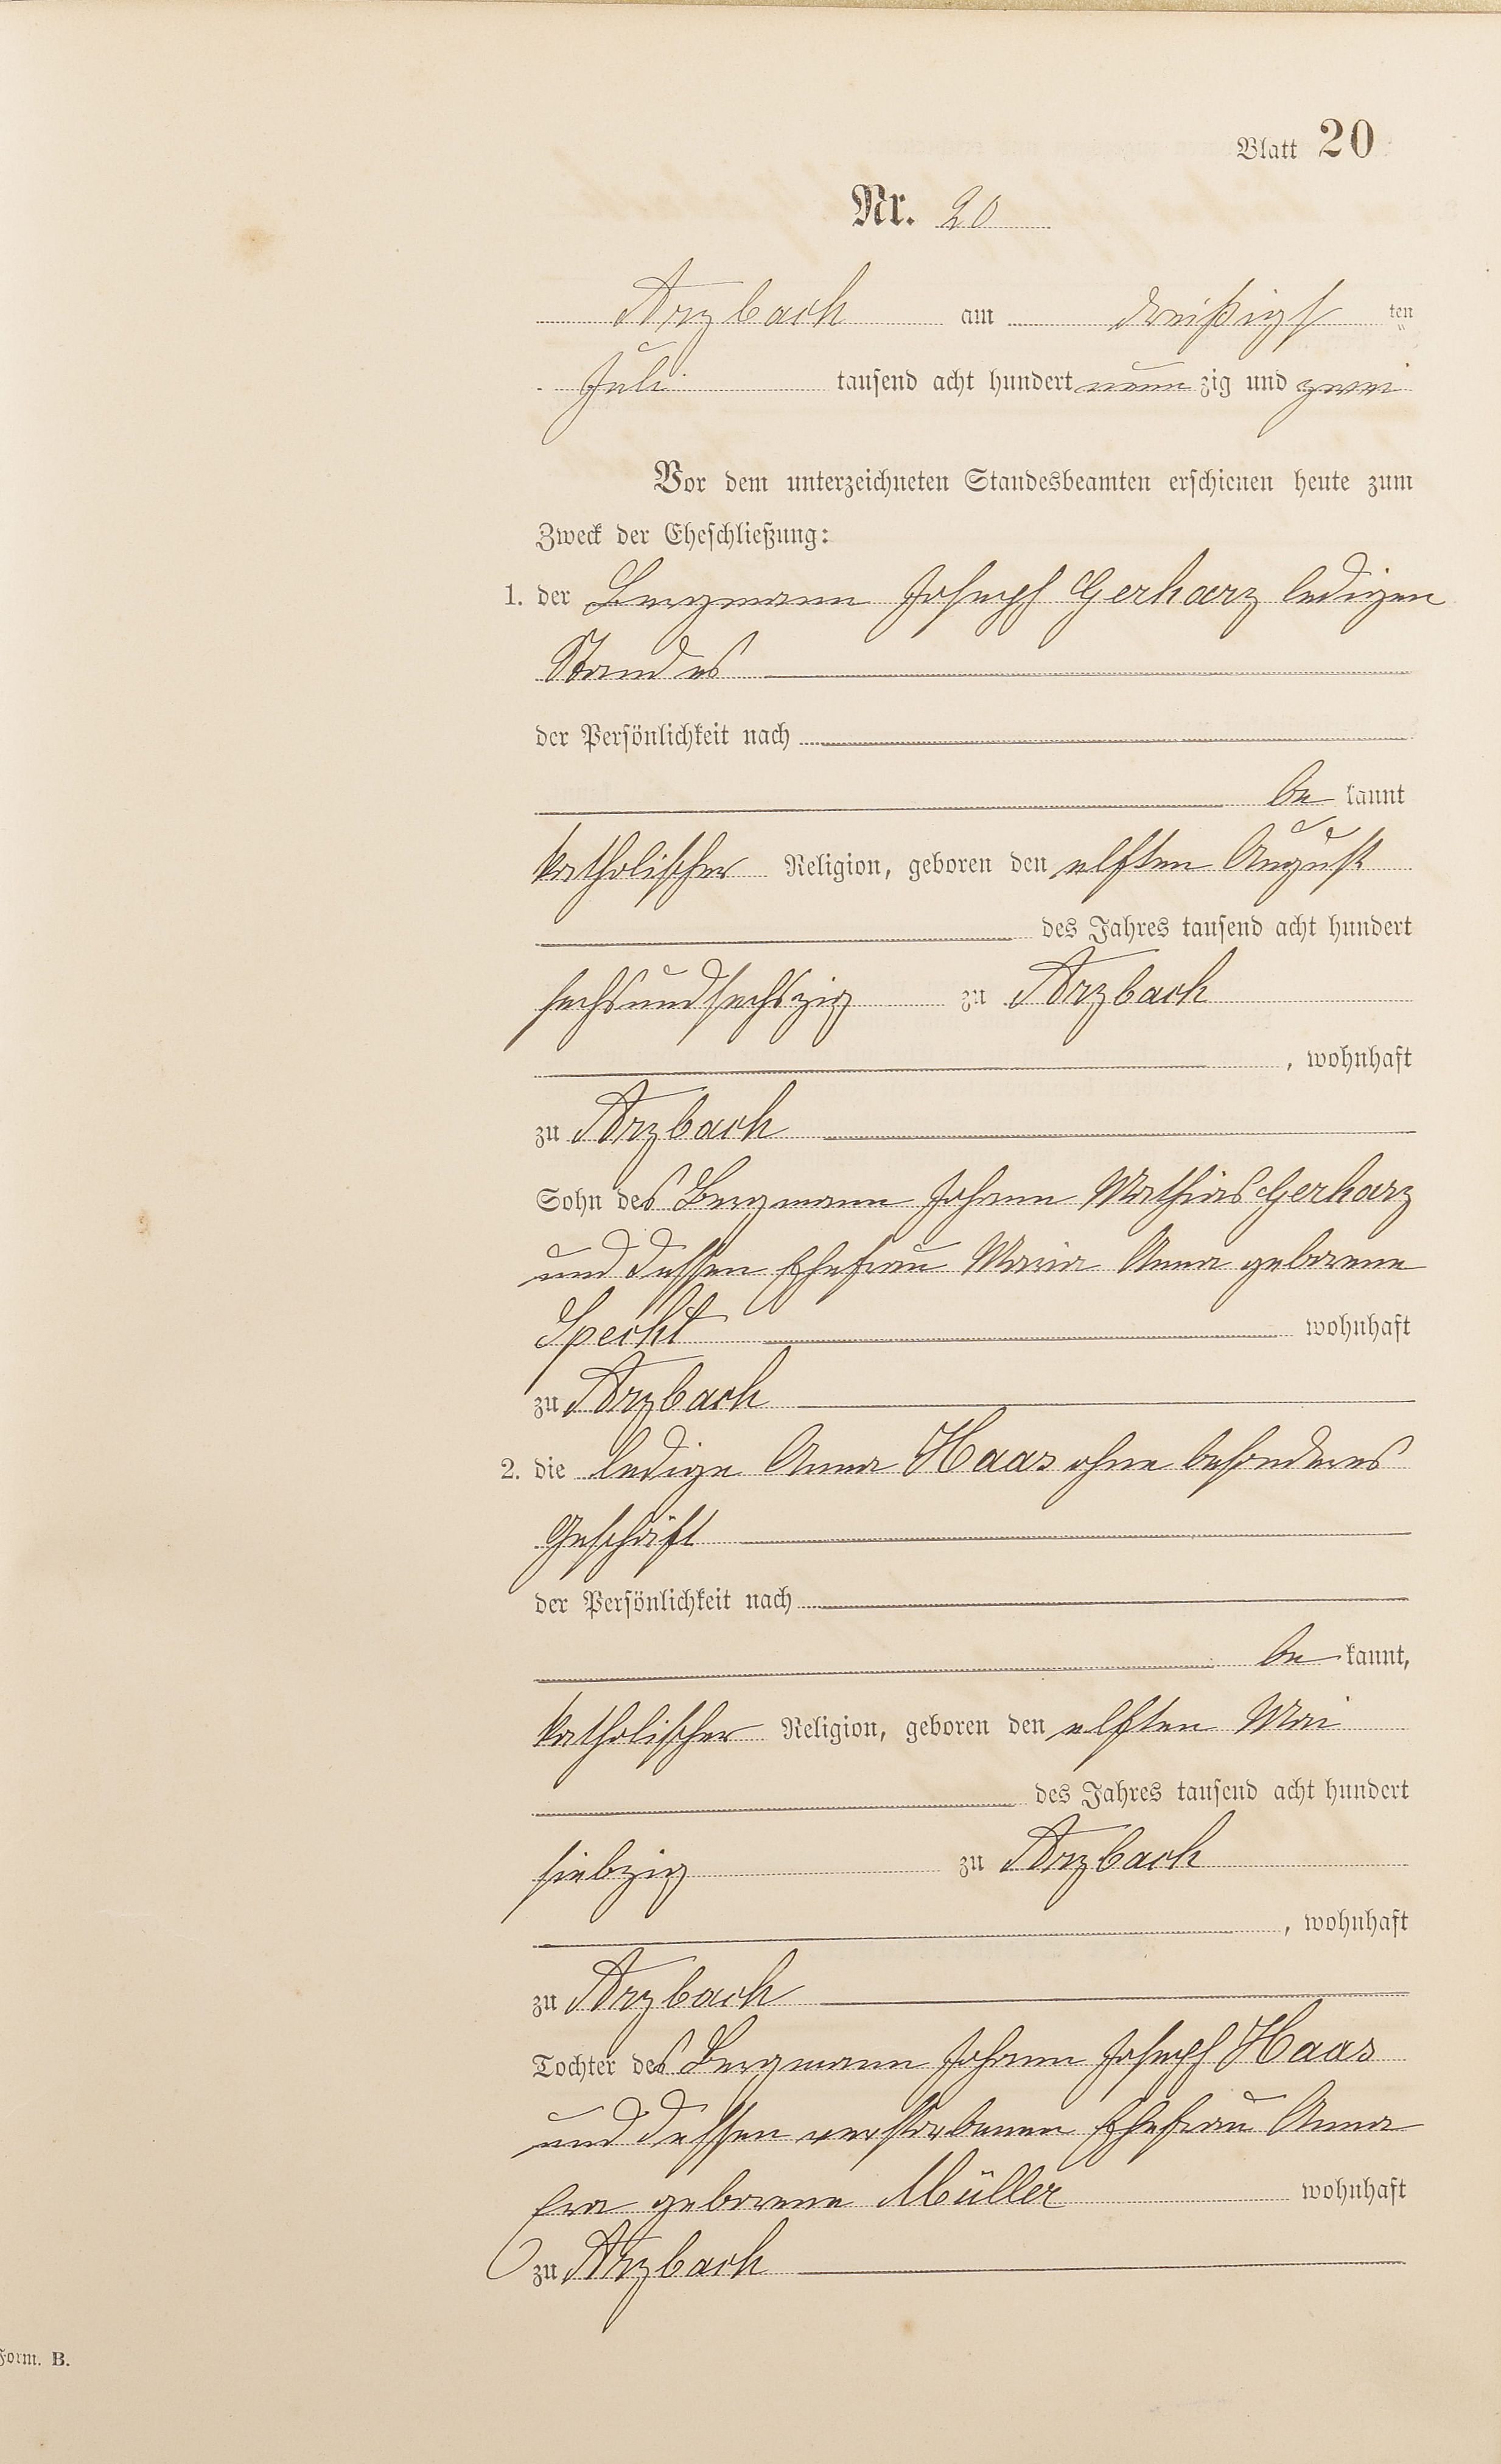 Blatt 20
Nr. 20
Arzbach am dreißigsten
Juli tausend acht hundert neunzig und zwei
Vor dem unterzeichneten Standesbeamten erschienen heute zum
Zweck der Eheschließung:
1. der Bergmann Joseph Gerharz ledigen
Standes
der Persönlichkeit nach
be kannt
katholischer Religion, geboren den elften August
des Jahres tausend acht hundert
sechsundsechszig zu Arzbach
, wohnhaft
zu Arzbach
Sohn des Bergmann Johann Mathias Gerharz
und dessen Ehefrau Maria Anna geborene
Specht wohnhaft
zu Arzbach
2. die ledige Anna Haas ohne besonderes
Geschäft
der Persönlichkeit nach
be kannt,
katholischer Religion, geboren den elften Mai
des Jahres tausend acht hundert
siebzig zu Arzbach
, wohnhaft
zu Arzbach
Tochter des Bergmann Johann Joseph Haas
und dessen verstorbenen Ehefrau Anna
Eva geborene Müller wohnhaft
zu Arzbach
Form. B.